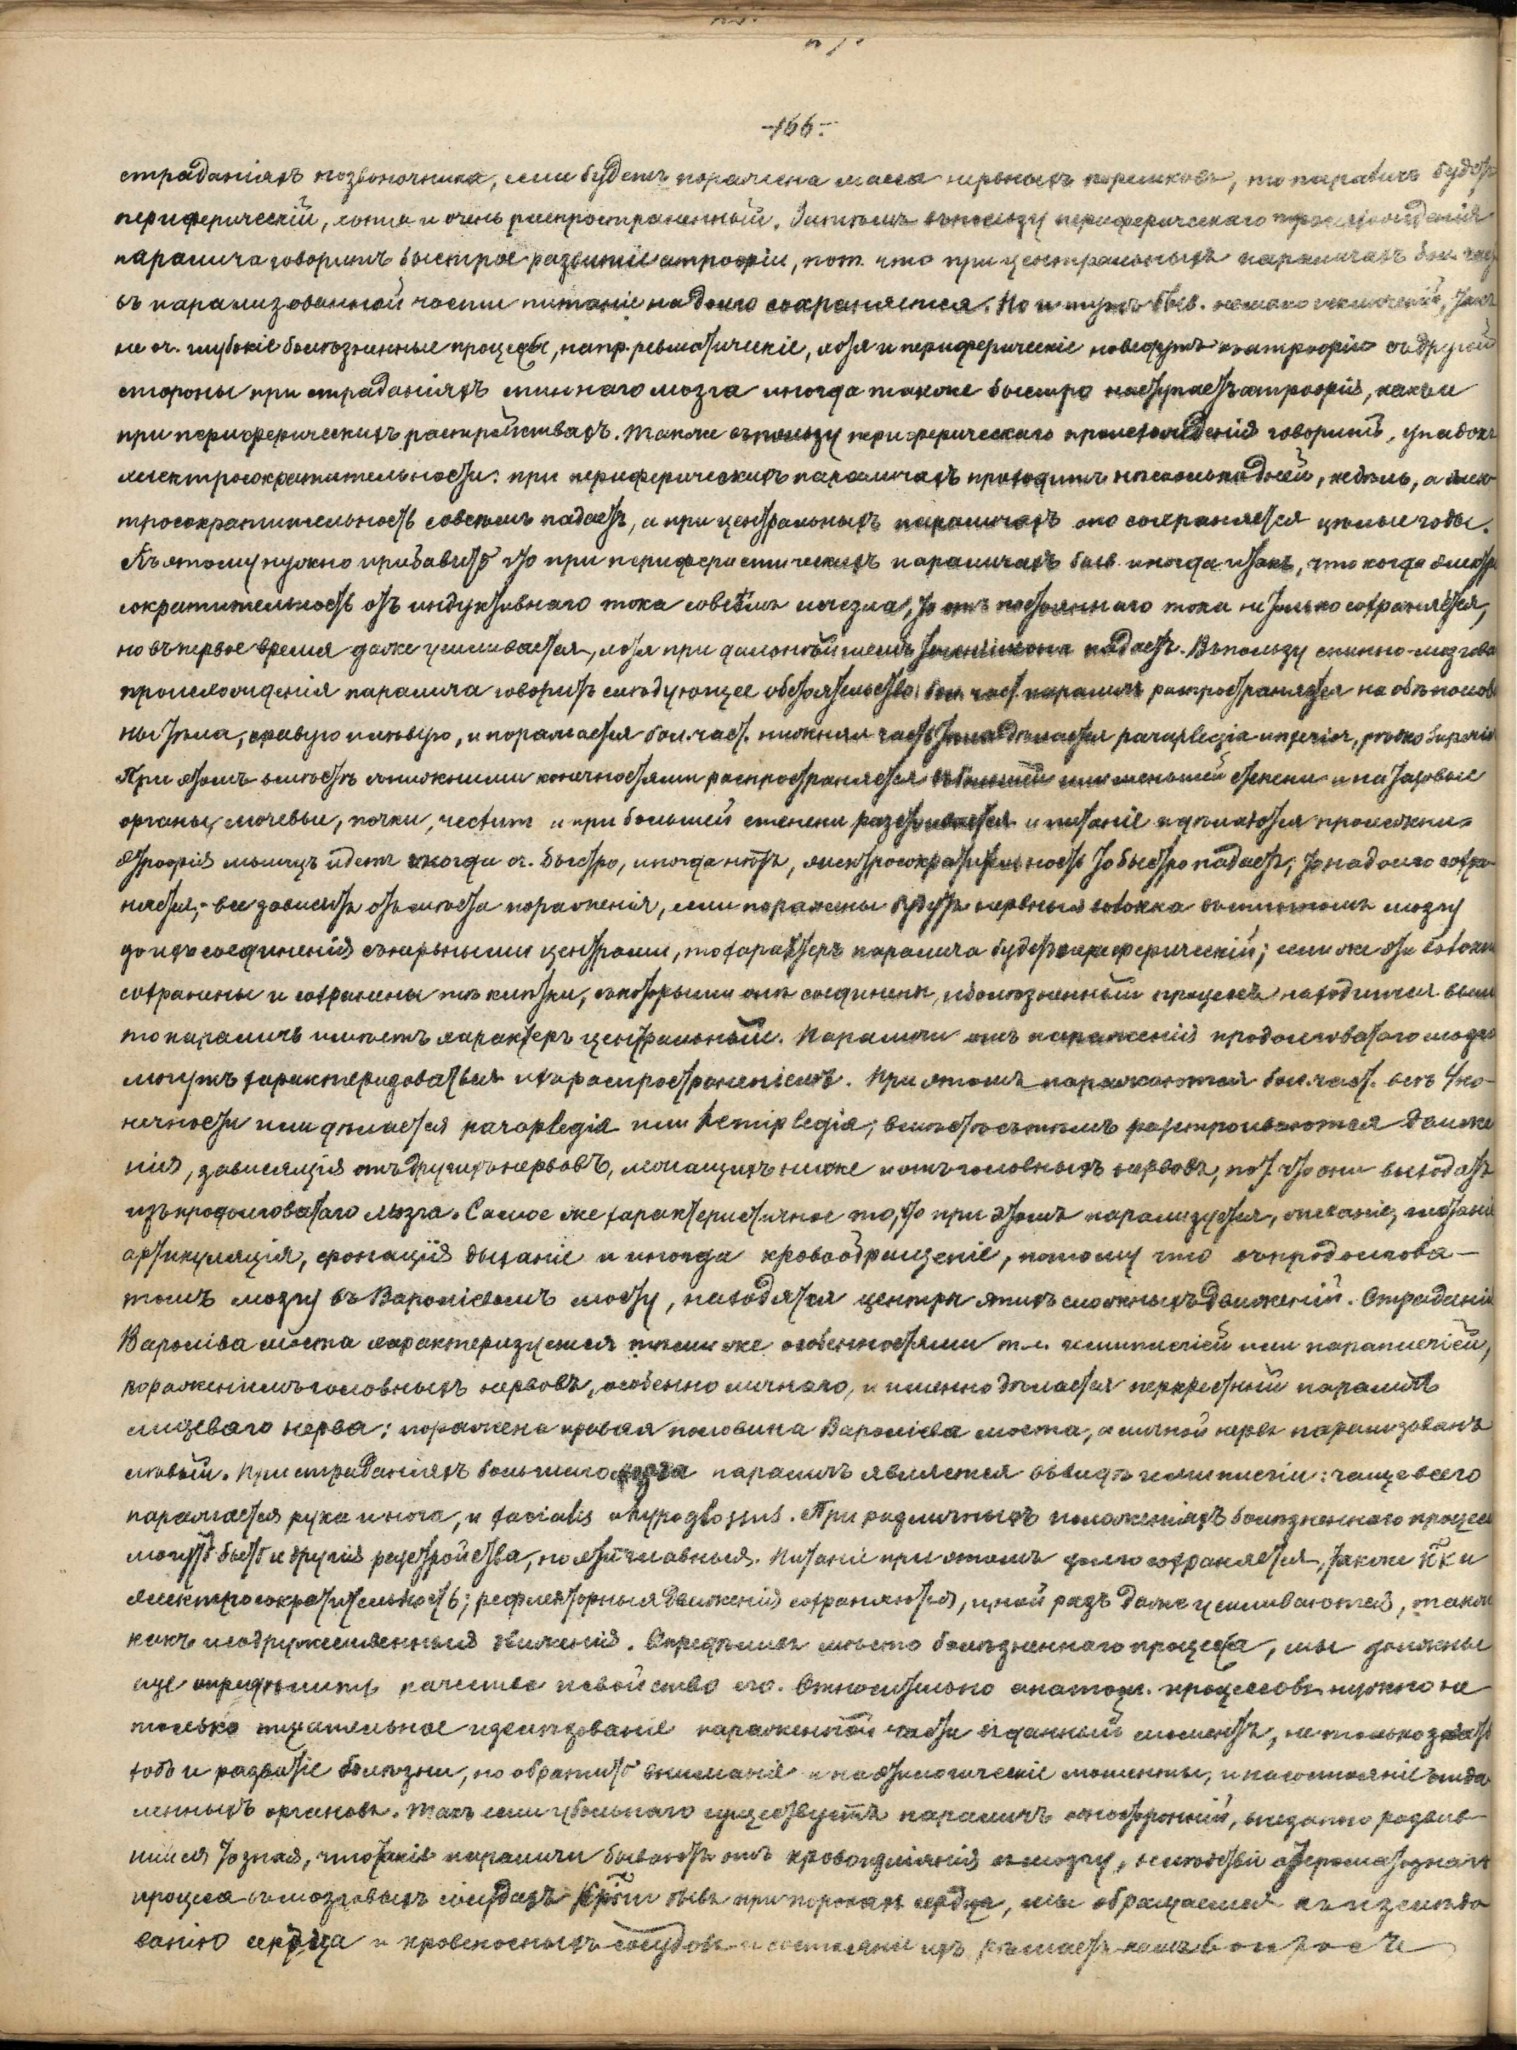 -166.-
страданіяхъ позвоночника, если будетъ поражена масса нервныхъ корешковъ, то параличъ будетъ
периферическій, хотя и очень распространенный. Затѣмъ въ пользу периферическаго происхожденія
паралича говоритъ быстрое развитіе атрофіи, пот. что при центральныхъ параличахъ бол. час
въ парализованной части питаніе надолго сохраняется. Но и тутъ быв. немало исключеній, такъ
не оч. глубокіе болѣзненные процессы, напр. ревматическіе, хотя и периферическіе не ведутъ къ атрофіи съ другой
стороны при страданіяхъ спиннаго мозга иногда также быстро наступаетъ атрофія, какъ и
при периферическихъ растройствахъ. Также въ пользу периферическаго происхожденія говоритъ, упадокъ
электросократительности: при периферическихъ параличахъ проходитъ нѣсколько дней, недѣль, а элек
тросократительность совсѣмъ падаетъ, а при центральныхъ параличахъ оно сохраняется цѣлые годы.
Къ этому нужно прибавить что при периферистическихъ параличахъ быв. иногда и такъ, что когда электр
сократительность отъ индуктивнаго тока совсѣмъ исчезла, то отъ постояннаго тока не только сохраняется,
но въ первое время даже усиливается, хотя при дальнѣйшемъ падаетъ. Въ пользу спинно-мозгова
происхожденія паралича говоритъ слѣдующее обстоятельство: бол. част. параличъ распространяется на обѣ полов
ны тѣла, правую и лѣвую, и поражается бол. част. нижняя часть тѣла дѣлается paraplegia inferior, рѣдко superior
При этомъ вмѣстѣ съ нижними конечностями распространяется въ большей или меньшей степени и на тазовые
органы, мочевые, почки, rectum и при большей степени разстроивается и питаніе и дѣлаются пролежни.
Атрофія мышцъ идетъ иногда оч. быстро, иногда нѣтъ, электросократительность то быстро падаетъ, то надолго сохра
няется, - все зависитъ отъ мѣста пораженія, если поражены будутъ нервныя волокна въ спинномъ мозгу
до ихъ соединенія съ нервными центрами, то характеръ паралича будетъ периферическій; если же эти волокна
сохранены и сохранены тѣ клѣтки, съ которыми онѣ соединены, и болѣзненный процессъ находится выше
то параличъ имѣетъ характеръ центральный. Параличи отъ пораженія продолговатаго мозга
могутъ характеризоваться и хар. распространеніемъ. При этомъ поражаются бол. част. всѣ 4 ко-
нечности или дѣлается paraplegia или hemiplegia; вмѣстѣ съ тѣмъ разстроиваются движе
нія, зависящія отъ другихъ нервовъ, лежащихъ ниже и отъ головныхъ нервовъ, пот. что они выходятъ
изъ продолговатаго мозга. Самое же характеристичное то, что при этомъ парализуется, глотаніе
артикуляція, фонація дыханіе и иногда кровообращеніе, потому что въ продолгова-
томъ мозгу въ Вароліевомъ мосту, находятся центры этихъ сложныхъ движеній. Страданія
Вароліева моста характеризуется тѣми же особенностями т.е. гемиплегіей или параплегіей,
пораженіемъ головныхъ нервовъ, особенно личнаго, и именно дѣлается перекрестный параличъ
лицеваго нерва: поражена правая половина Вароліева моста, а личной нервъ парализованъ
лѣвый. При страданіяхъ большаго мозга параличъ является въ видѣ гемиплегіи: чаще всего
поражается рука и нога, и facialis и hypoglossus. При различныхъ положеніяхъ болѣзненнаго процесса
могутъ быть и другія разстройства, но эти главныя. Питаніе при этомъ долго сохраняется, также к̃к и
электросократительность; рефлекторныя движенія сохраняются, иной разъ даже усиливаются, также
какъ и содружественныя движенія. Опредѣливъ мѣсто болѣзненнаго процесса, мы должны
еще опредѣлить качество и свойство его. Относительно анатом. процессовъ нужно не
только тщательное изслѣдованіе пораженной части въ данный моментъ, не только знать
ходъ и развитіе болѣзни, но обратить вниманіе и на этіологическіе моменты, и на состояніе отда
ленныхъ органовъ. Такъ если у больнаго существуетъ параличъ односторонній, внезапно развив-
шійся то зная, что такіе параличи бываютъ отъ кровоизліянія въ мозгу, вслѣдствіи атероматознаго
процесса въ мозговыхъ сосудахъ быв. при порокахъ сердца, мы обращаемся къ изслѣдо
ванію сердца и кровеносныхъ сосудовъ и состояніе ихъ рѣшаетъ намъ вопросъ